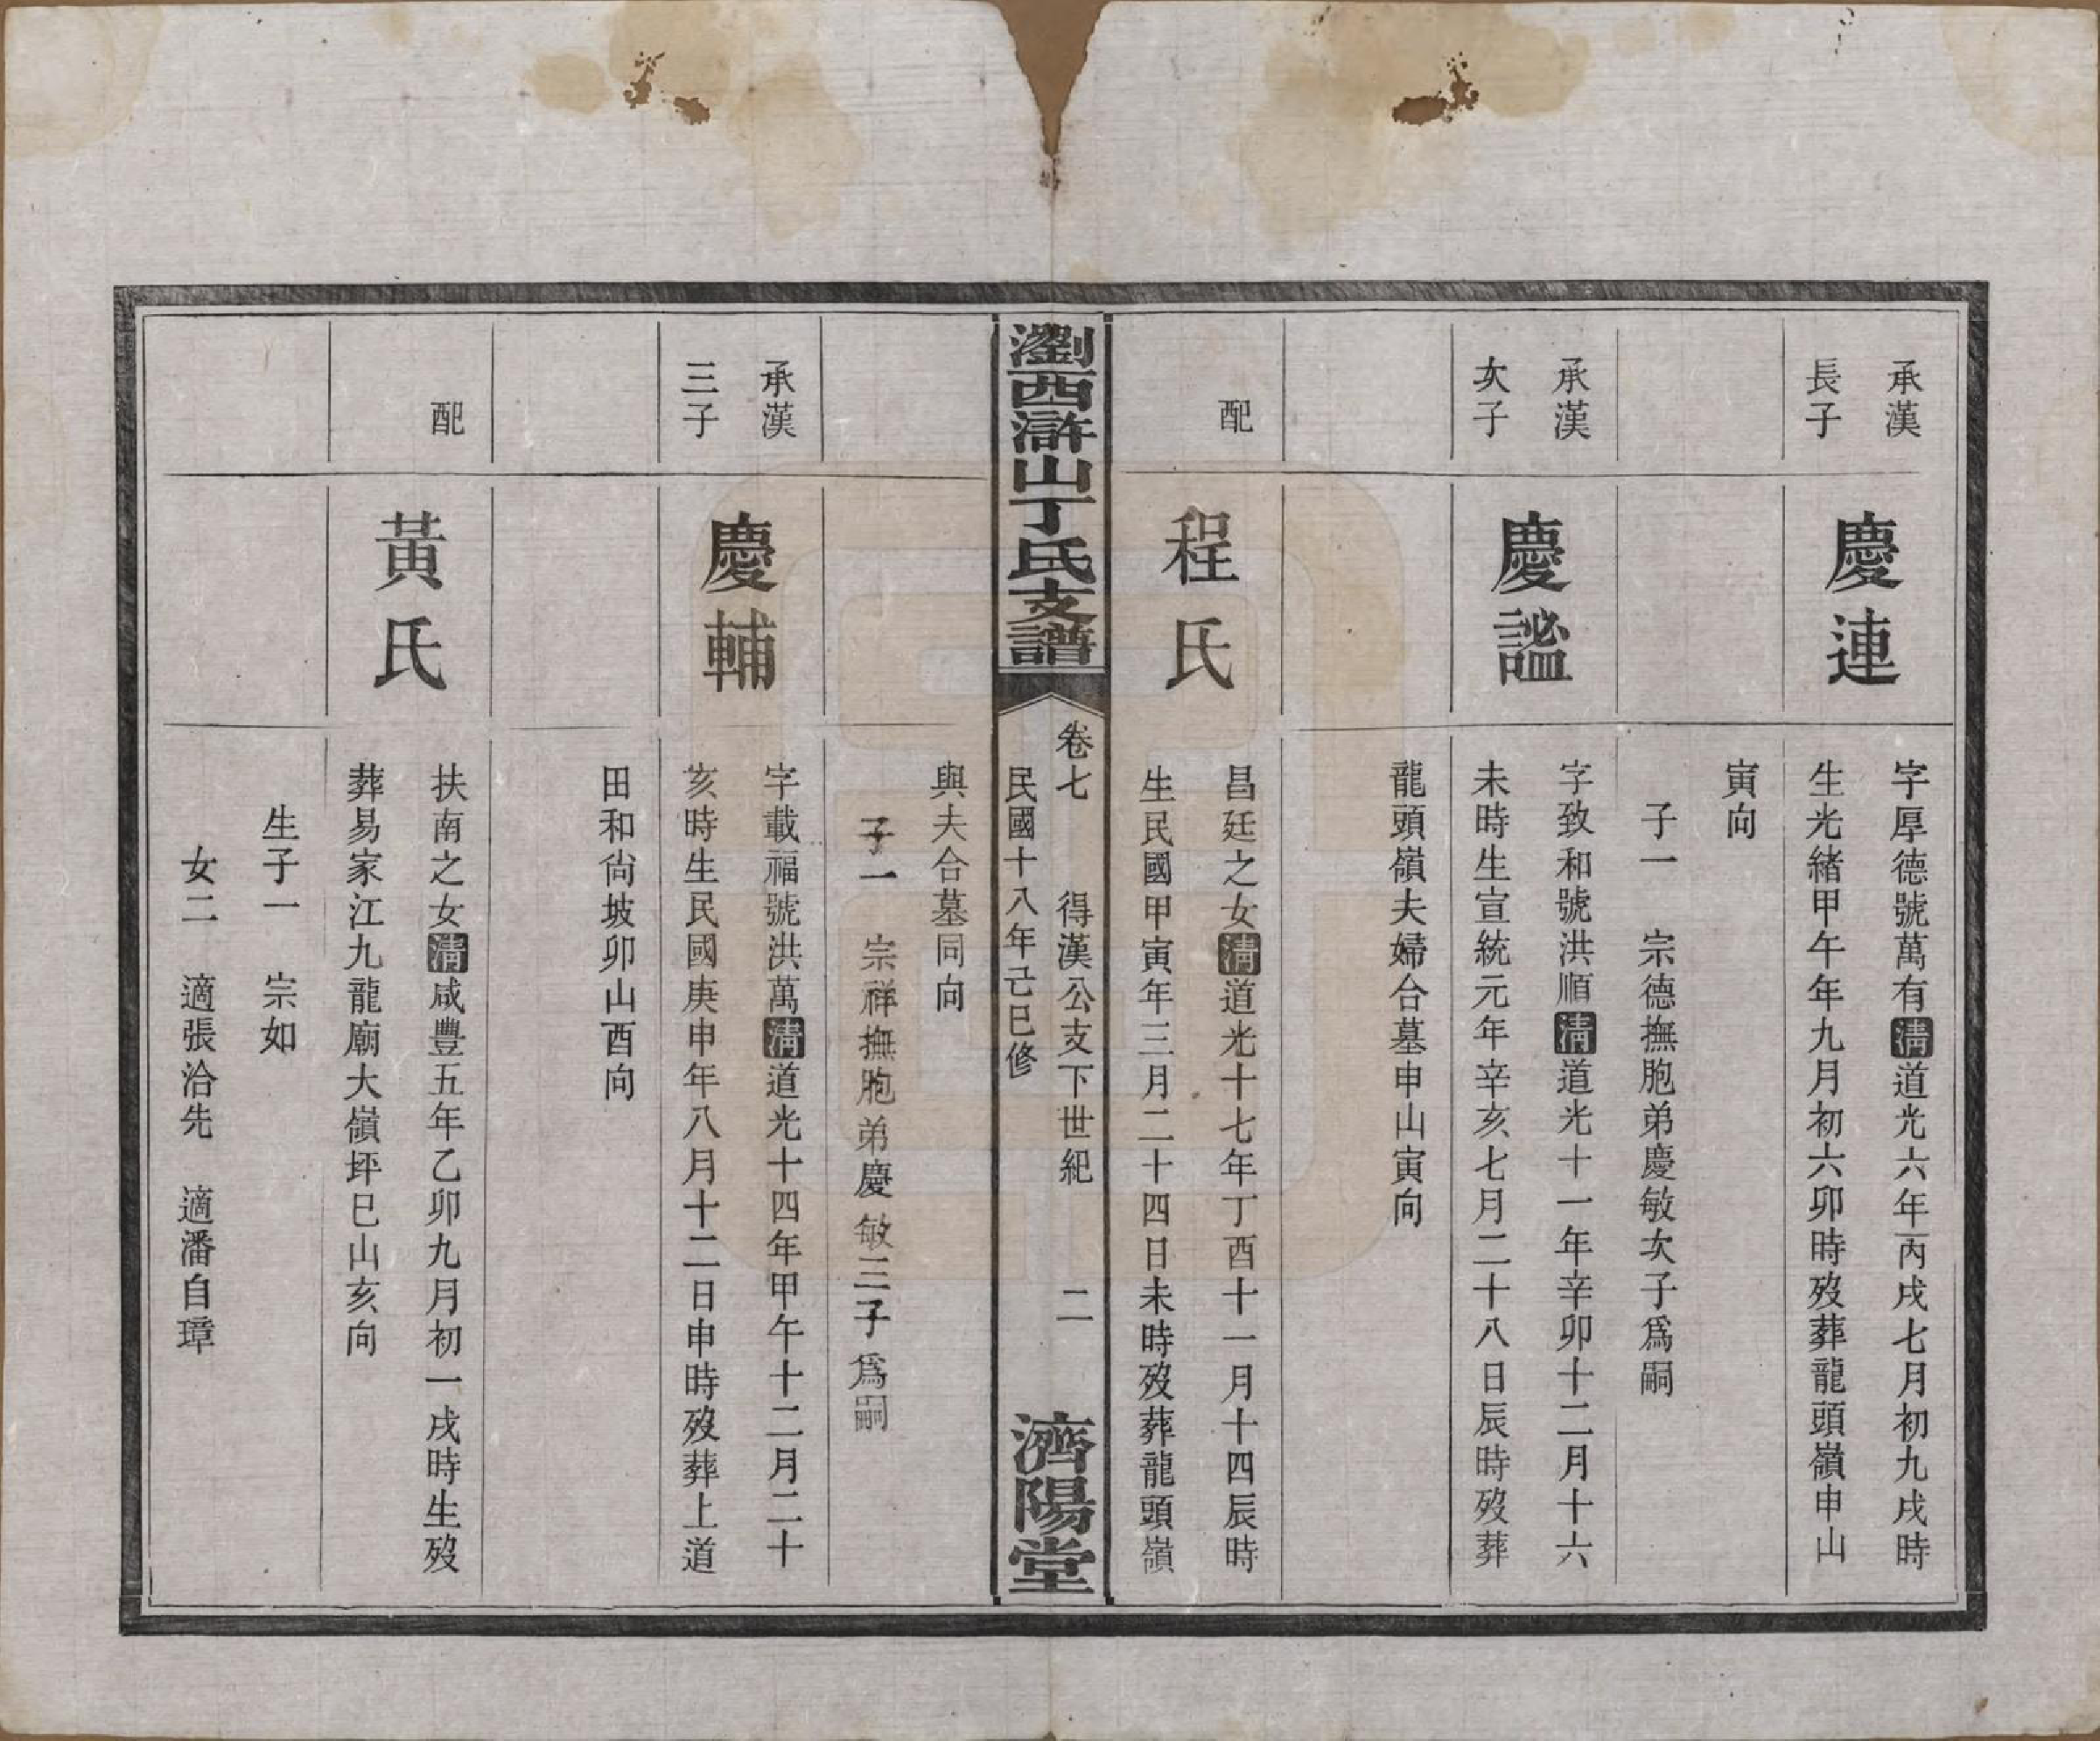 承漢
長子
慶連
字厚德號萬有清道光六年丙戌七月初九戌時
生光緒甲午年九月初六卯時歿葬龍頭嶺申山
寅向
子一　宗德撫胞弟慶敏次子爲嗣
承漢
次子
慶謐
字致和號洪順清道光十一年辛卯十二月十六
未時生宣統元年辛亥七月二十八日辰時歿葬
龍頭嶺夫婦合墓申山寅向
配
程氏
昌廷之女清道光十七年丁酉十一月十四辰時
生民國甲寅年三月二十四日未時歿葬龍頭嶺
瀏西滸山丁氏支譜
卷七　得漢公支下世紀　二
民國十八年己巳修
濟陽堂
與夫合墓同向
子一　宗祥撫胞弟慶敏三子爲嗣
承漢
三子
慶輔
字載福號洪萬清道光十四年甲午十二月二十
亥時生民國庚申年八月十二日申時歿葬上道
田和尚坡卯山酉向
配
黃氏
扶南之女清咸豐五年乙卯九月初一戌時生歿
葬易家江九龍廟大嶺坪巳山亥向
生子一　宗如
女二　適張洽先　適潘自璋